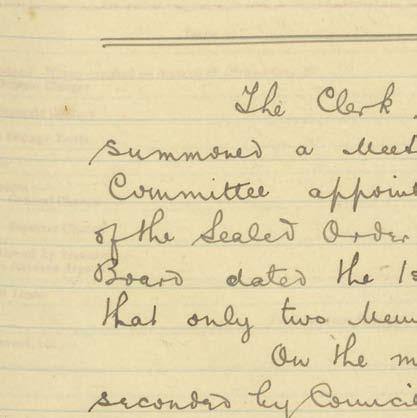 The Clerk
summoned a Meet
Committee appoint
of the Sealed Order
Board dated the 1s
that only two Mem
On the m
seconded by Counci